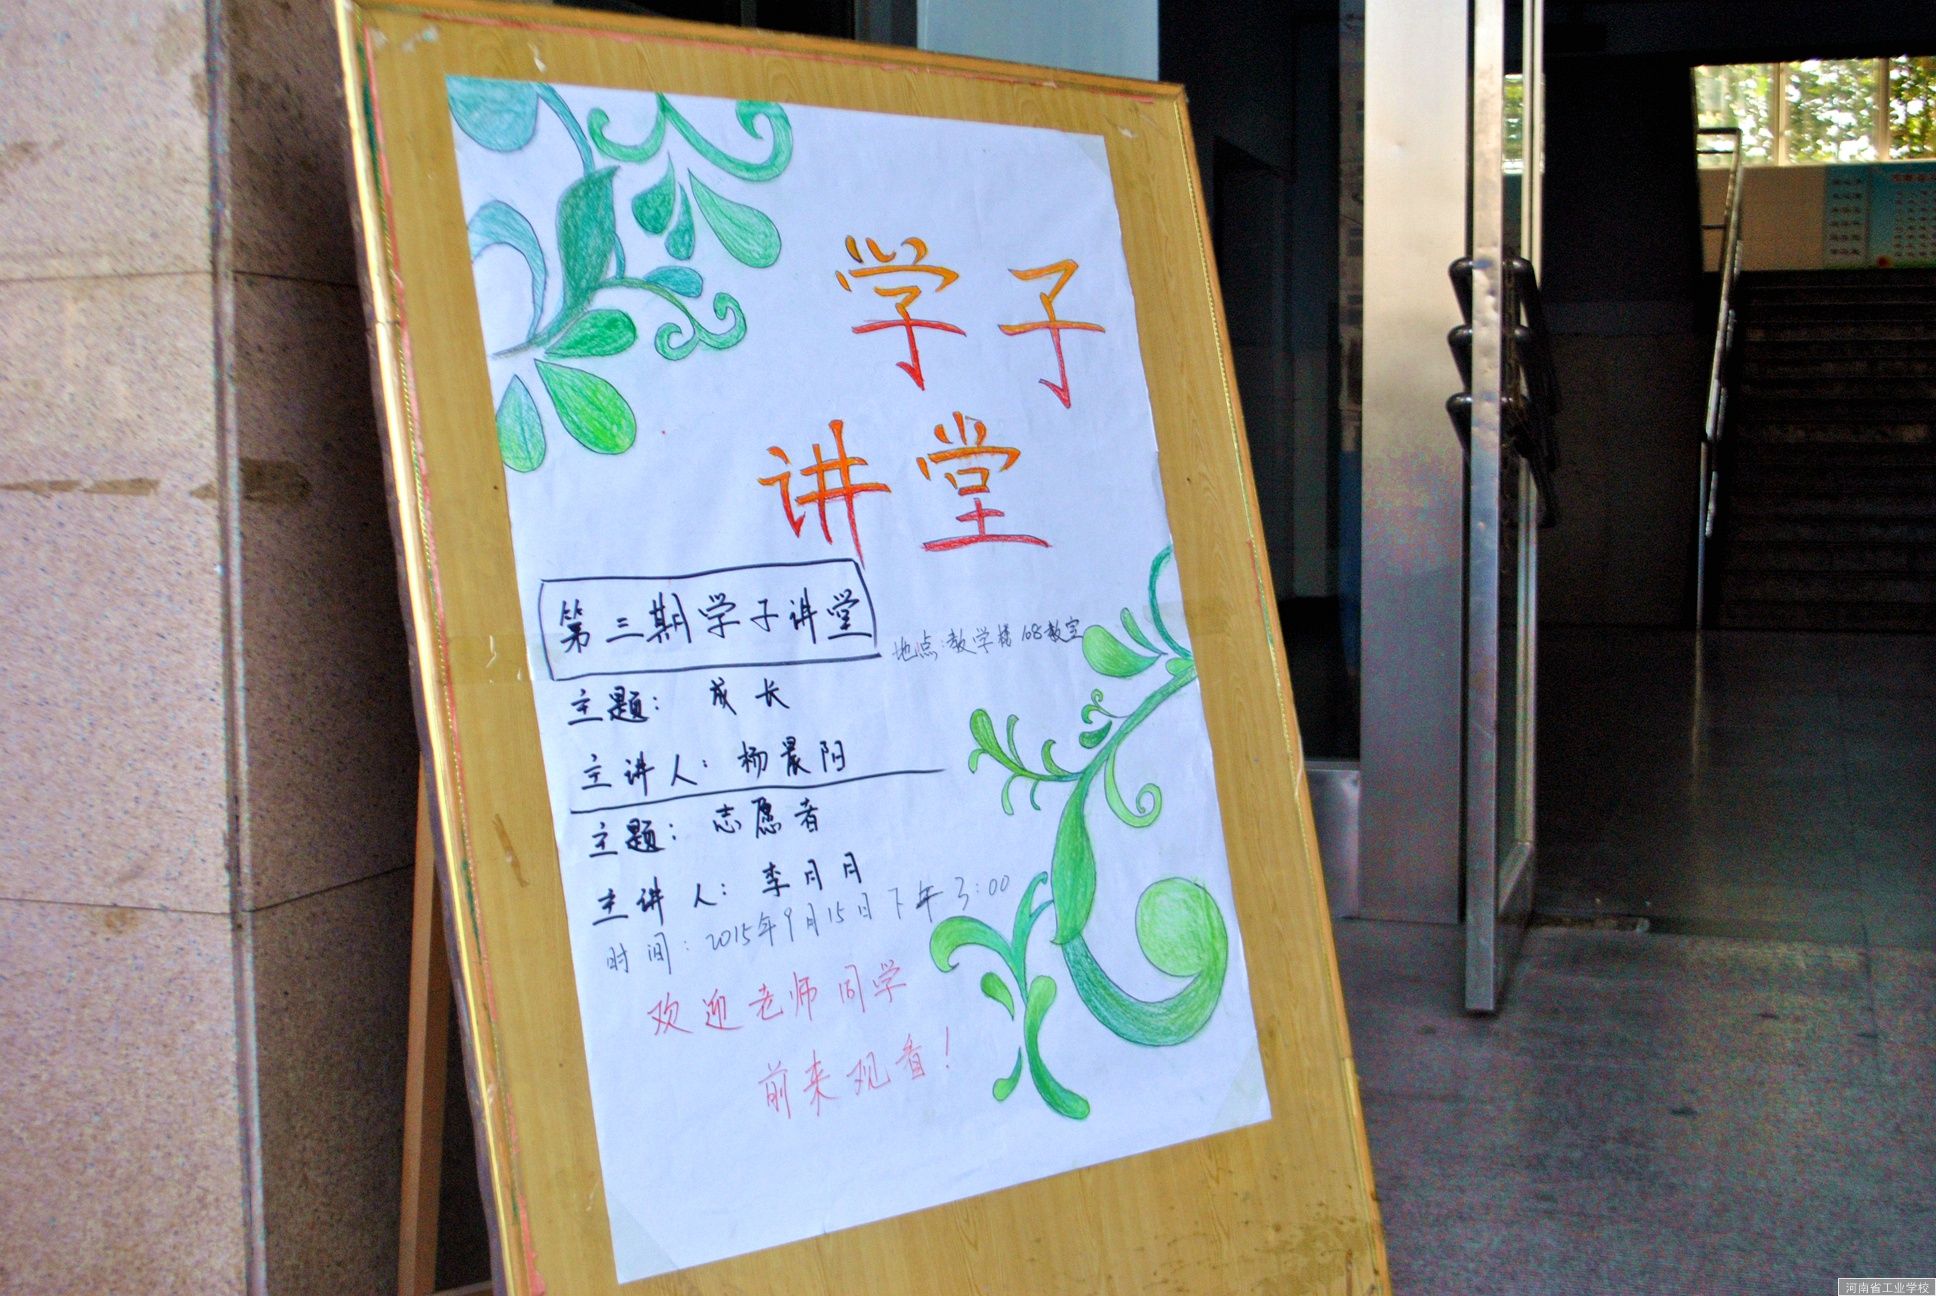 学子
讲堂
第三期学子讲堂
地点:教学楼108教室
主题: 成长
主讲人: 杨晨阳
主题: 志愿者
主讲人: 李月月
时间: 2015年9月15日下午3:00
欢迎老师同学
前来观看!
河南省工业学校